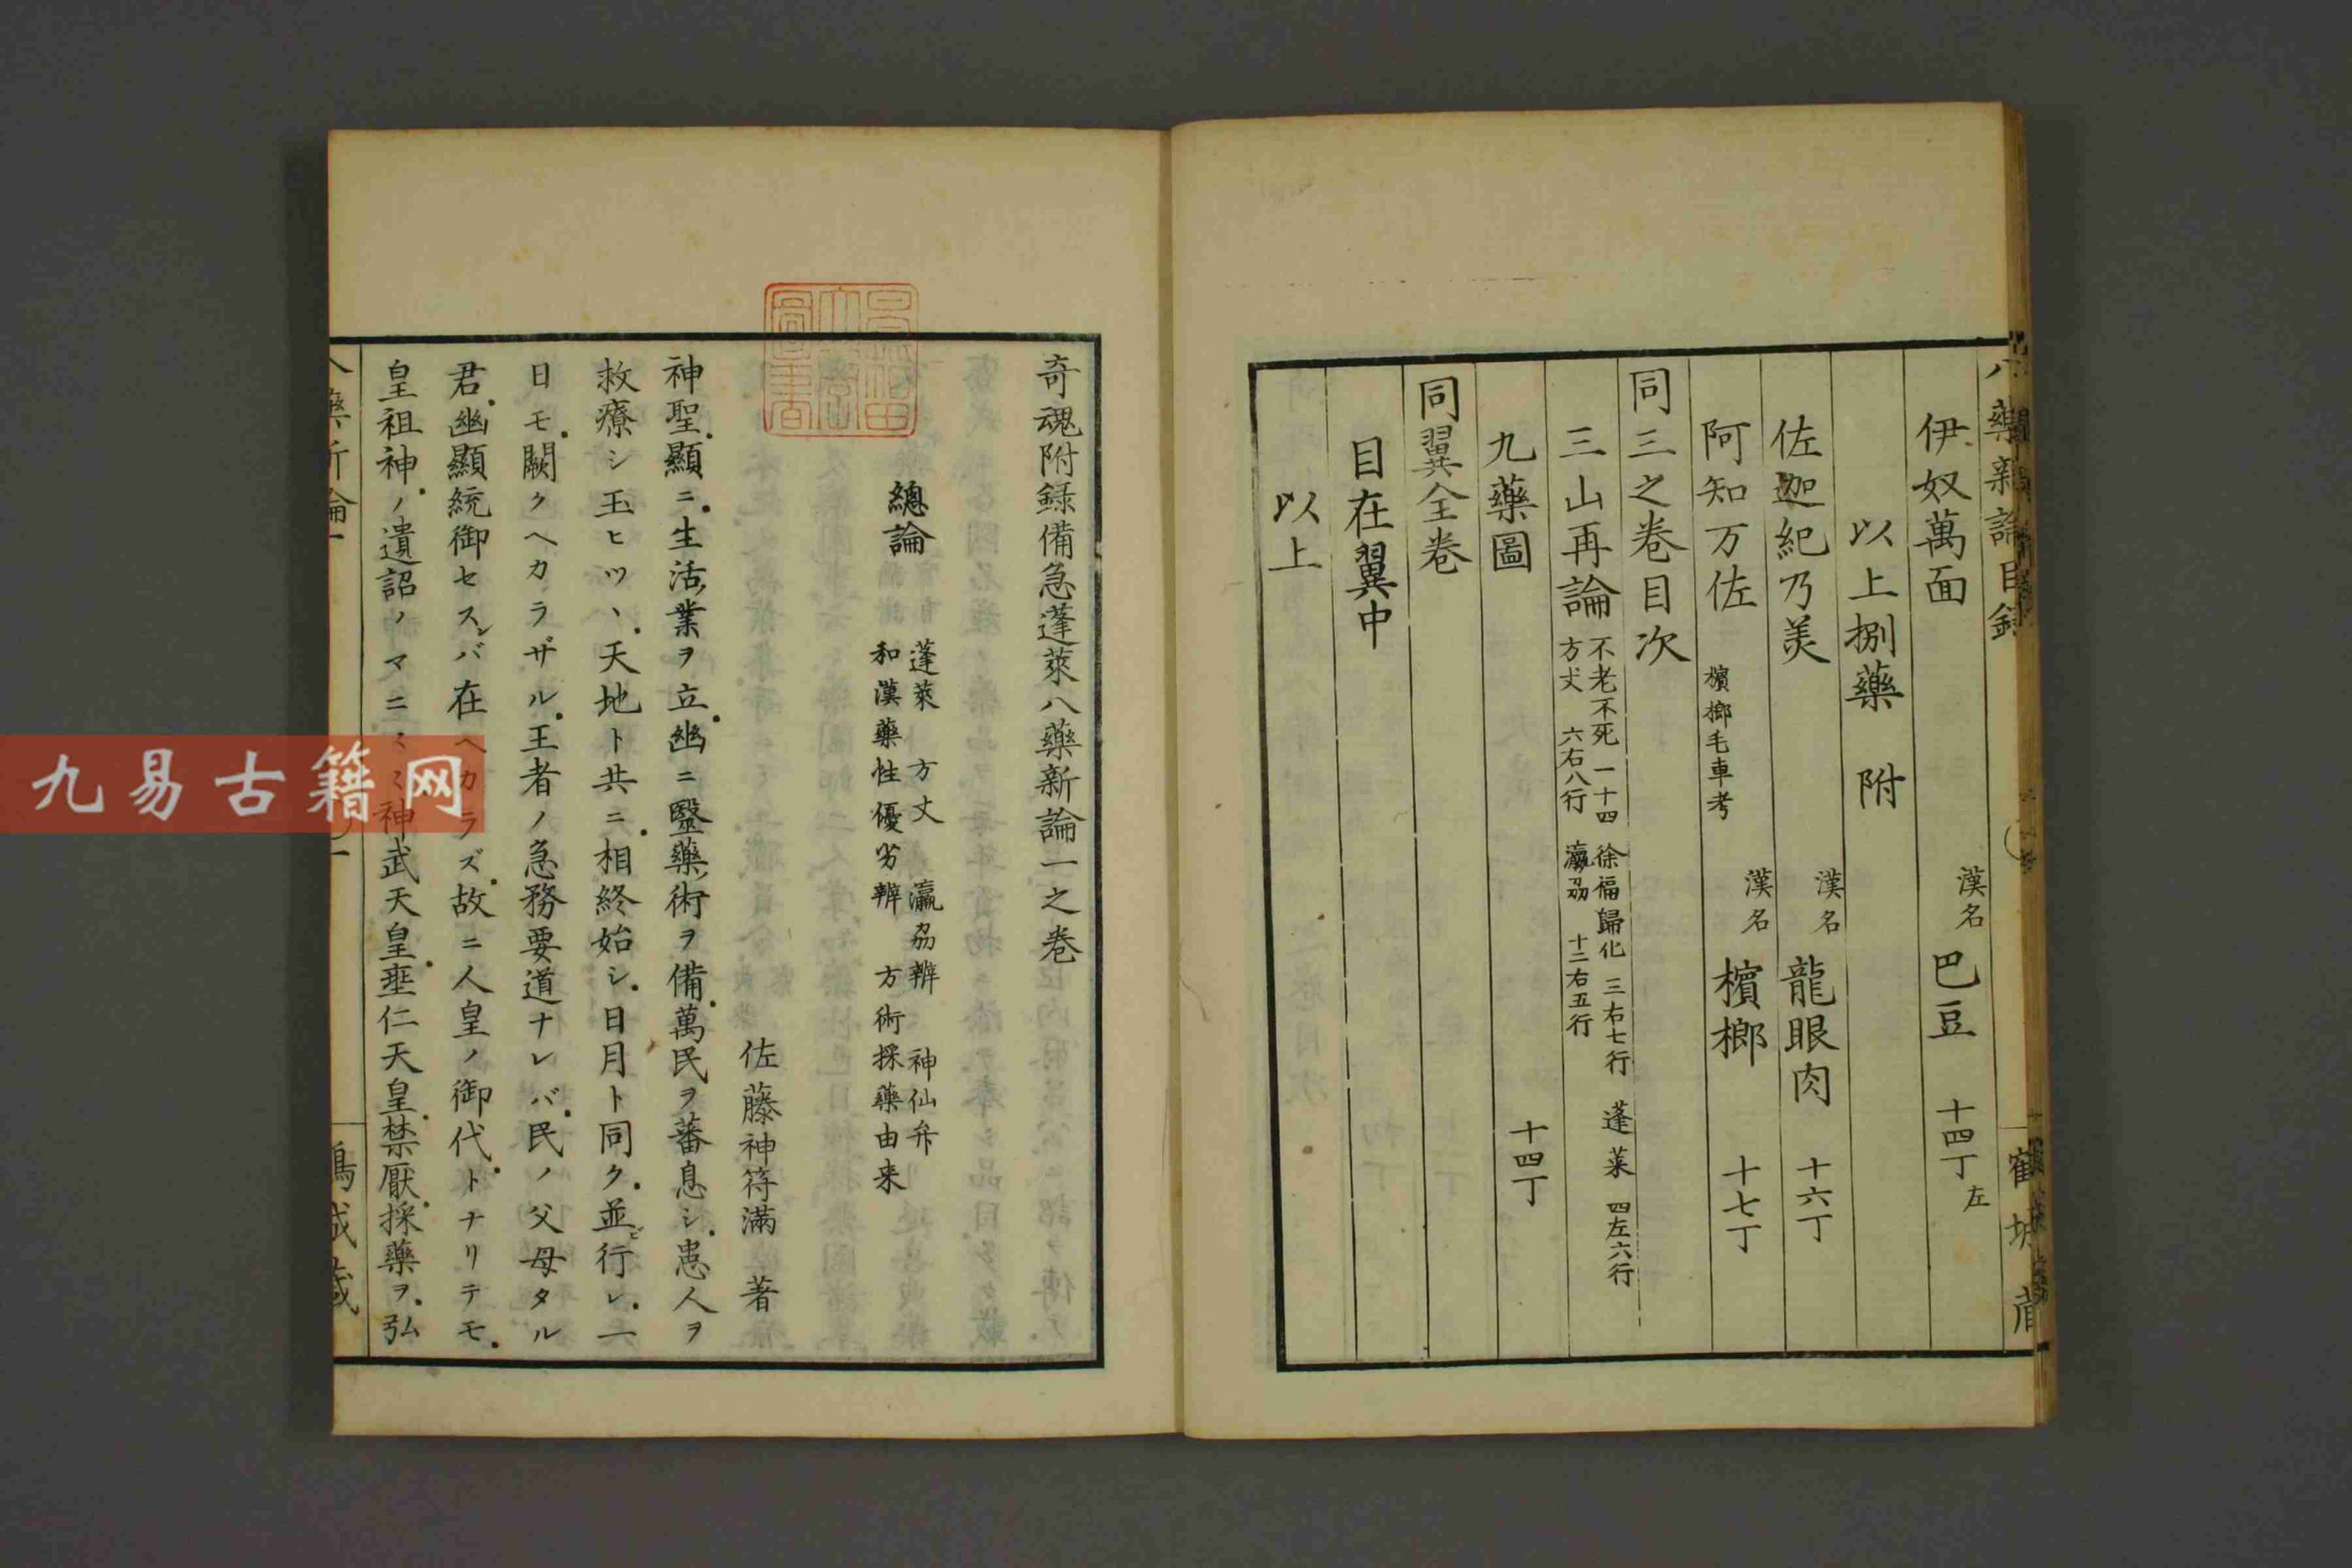 八藥新論目録
伊奴萬面 漢名 巴豆 十四丁左
以上捌藥 附
佐迦紀乃美 漢名 龍眼肉 十六丁
阿知万佐 檳榔毛車考 漢名 檳榔 十七丁
同三之巻目次
三山再論 不老不死 一十四 徐福歸化 三右七行 蓬莱 四左六行
方丈 六右八行 瀛㔟 十二右五行
九藥圖 十四丁
同翼全巻
目在翼中
以上
奇魂附録備急蓬萊八藥新論一之巻
總論 蓬萊 方丈 瀛㔟辨 神仙弁
和漢藥性優劣辨 方術採藥由来
佐藤神符滿 著
神聖顯ニ生活ノ業ヲ立幽ニ醫藥ノ術ヲ備萬民ヲ蕃息シ患人ヲ
救療シ玉ヒツヽ天地ト共ニ相終始シ日月ト同ク並ビ行レ一
日モ闕クヘカラザル王者ノ急務要道ナレバ民ノ父母タル
君幽顯統御セスンバ在ヘカラズ故ニ人皇ノ御代トナリテモ
皇祖神ノ遺詔ノマニミミ神武天皇垂仁天皇禁厭採藥ヲ弘
九易古籍网